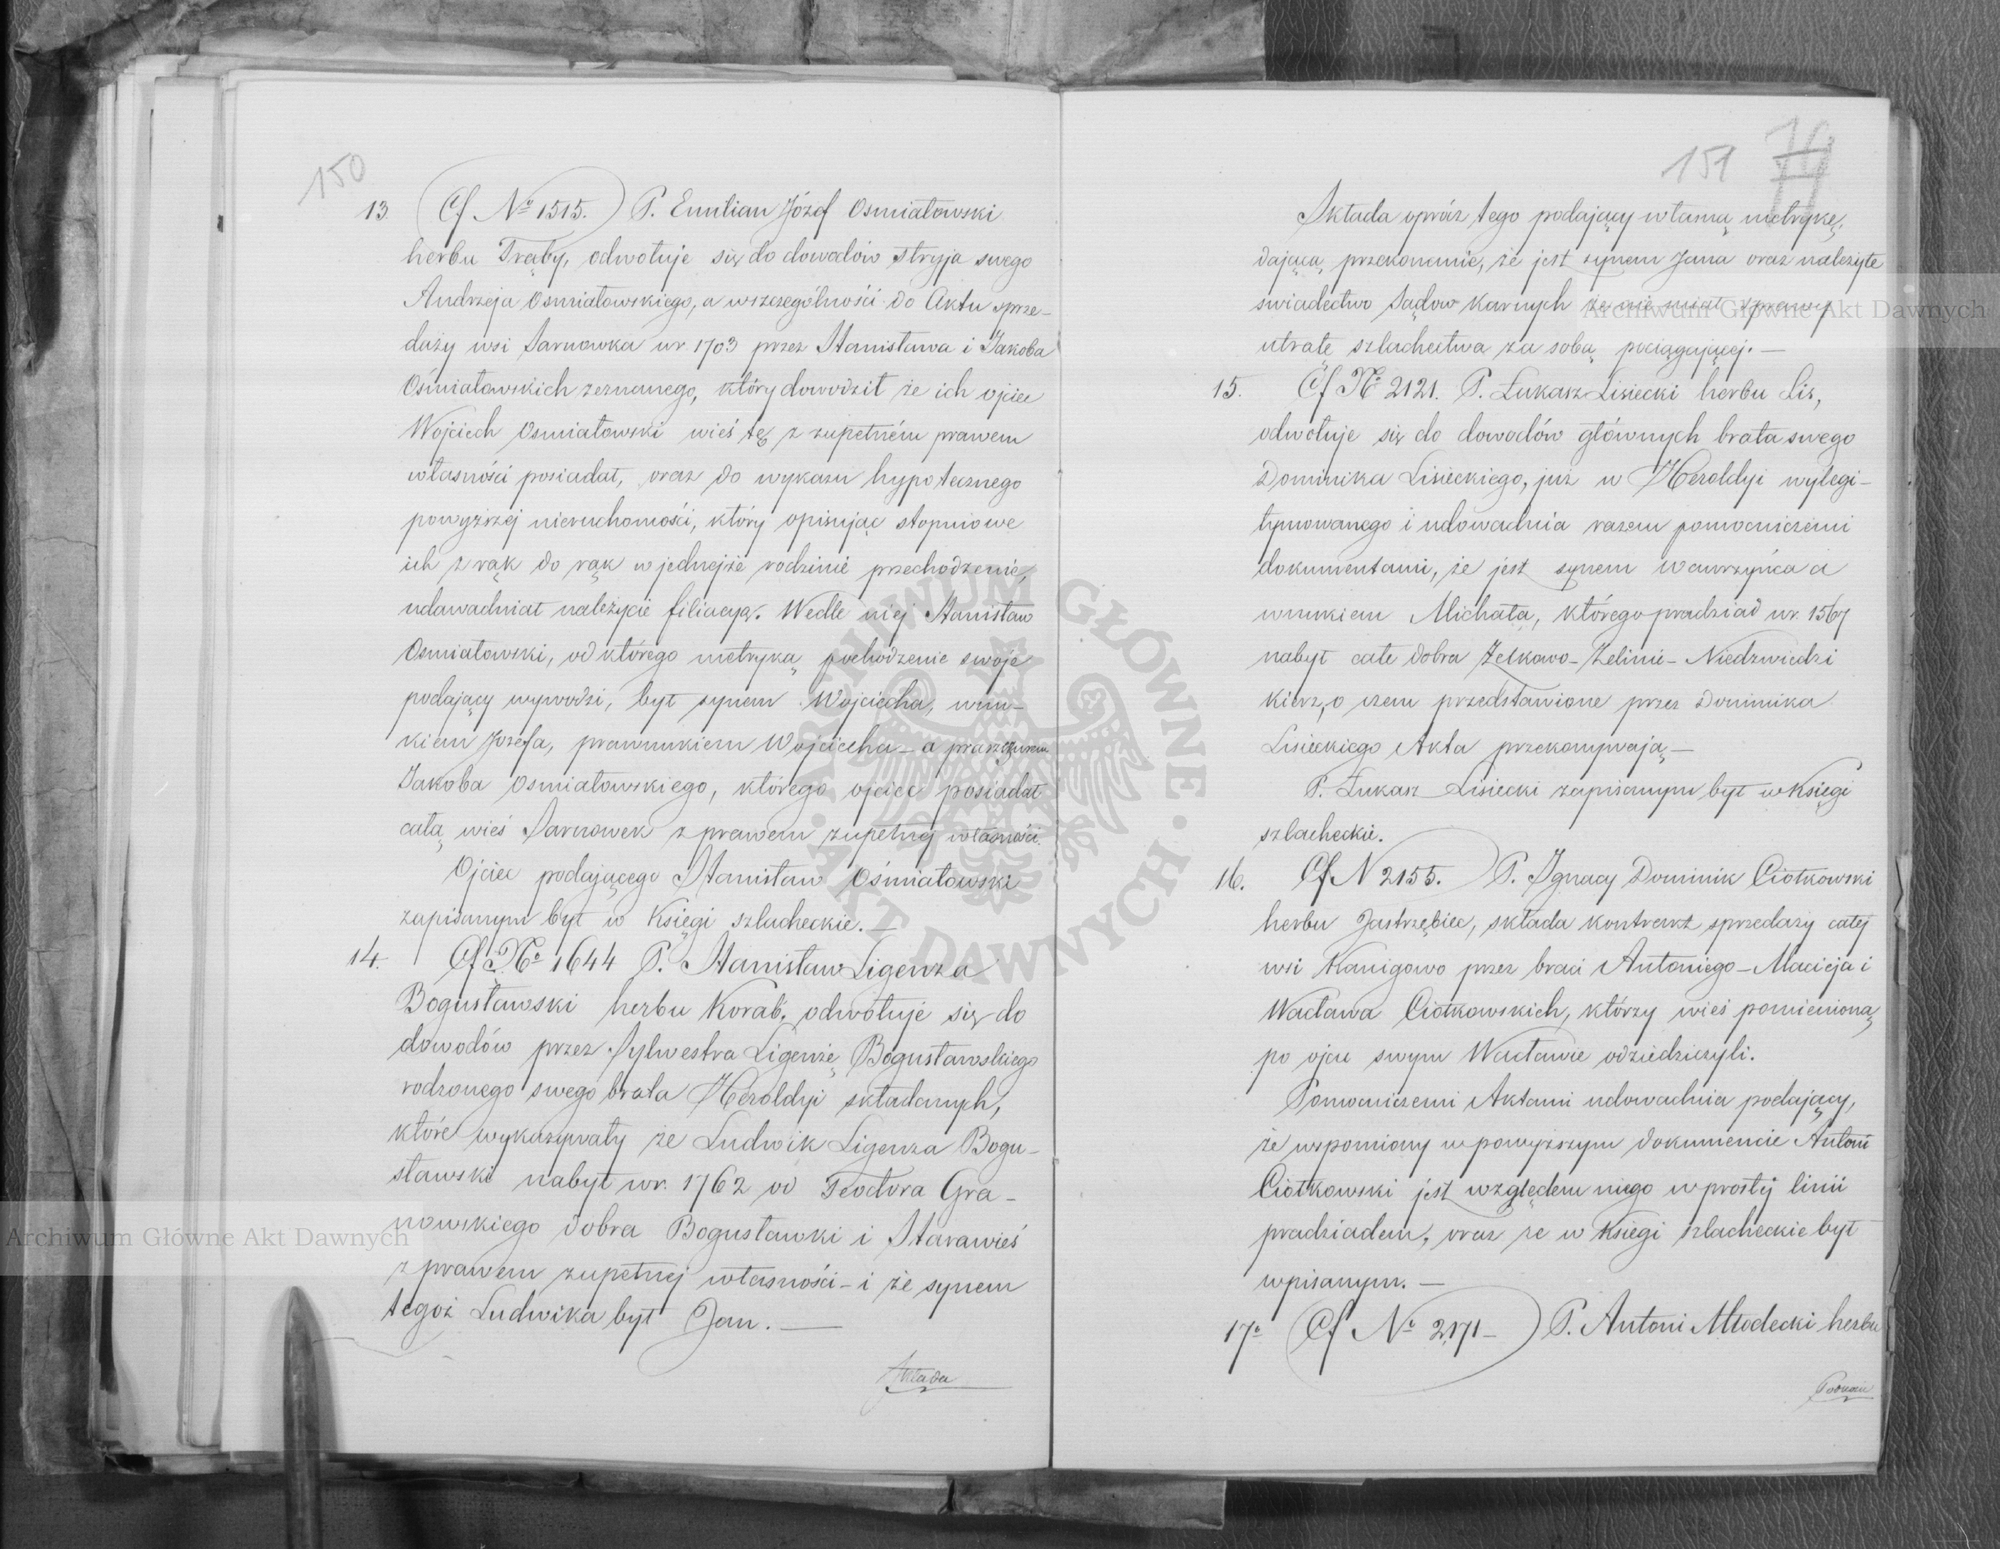 150
13. Cf No 1515. P. Emilian Józef Osmiałowski
herbu Trąby, odwołuje się do dowodów stryja swego
Andrzeja Osmiałowskiego, a wszczególności do Aktu sprze-
daży wsi Sarnowka w r. 1703 przez Stanisława i Jakoba
Ośmiałowskich zeznanego, który dowodził że ich ojciec
Wojciech Osmiałowski wieś tę z zupełném prawem
własności posiadał, oraz do wykazu hypotecznego
powyższej nieruchomości, który opisując stopniowe
ich z rąk do rąk w jednejże rodzinie przechodzenie,
udawadniał należycie filiacyą. Wedle niej Stanisław
Osmiałowski, od którego metryką pochodzenie swoje
podający wywodzi, był synem Wojciecha, wnu-
kiem Jozefa, prawnukiem Wojciecha – a praszczurem
Jakoba Osmiałowskiego, którego ojciec posiadał
całą wieś Sarnowek z prawem zupełnej własności.
Ojciec podającego Stanisław Ośmiałowski
zapisanym był w Księgi szlacheckie. –
14. Cf No 1644 P. Stanisław Ligenza
Bogusławski herbu Korab, odwołuje się do
dowodów przez Sylwestra Ligenżę Bogusławskiego
rodzonego swego brata Heroldyi składanych,
które wykazywały że Ludwik Ligenza Bogu-
sławski nabył w r. 1762 od Teodora Gra-
nowskiego dobra Bogusławki i Starawieś
z prawem zupełnej własności – i że synem
tegoż Ludwika był Jan. –
Składa
151 74
Składa oprócz tego podający własną metrykę,
dającą przekonanie, że jest synem Jana oraz należyte
swiadectwo Sądow Karnych że nie miał sprawy
utratę szlachectwa za sobą pociągającej. –
15. Cf No 2121. P. Łukasz Lisiecki herbu Lis,
odwołuje się do dowodów głównych brata swego
Dominika Lisieckiego, już w Heroldyi wylegi-
tymowanego i udowadnia razem pomocniczemi
dokumentami, że jest synem Wawrzyńca a
wnukiem Michała, którego pradziad w r. 1567
nabył całe dobra Żelkowo – Żelinie – Niedzwiedzi
kierz, o czem przedstawione przez Dominika
Lisieckiego Akta przekonywają –
P. Łukasz Lisiecki zapisanym był w Księgi
szlacheckie.
16. Cf N 2155. P. Ignacy Dominik Ciotkowski
herbu Jastrzębiec, składa kontrakt sprzedaży całej
wsi Kanigowo przez braci Antoniego – Macieja i
Wacława Ciotkowskich, którzy wieś pomienioną
po ojcu swym Wacławie odziedziczyli.
Pomocniczemi Aktami udowadnia podający,
że wspomiony w powyższym dokumencie Antoni
Ciotkowski jest względem niego w prostej linii
pradziadem, oraz że w Księgi szlacheckie był
wpisanym. –
17o Cf No 2171 – P. Antoni Młodecki herbu
Archiwum Główne Akt Dawnych
Archiwum Główne Akt Dawnych
ARCHIWUM GŁÓWNE · AKT DAWNYCH ·